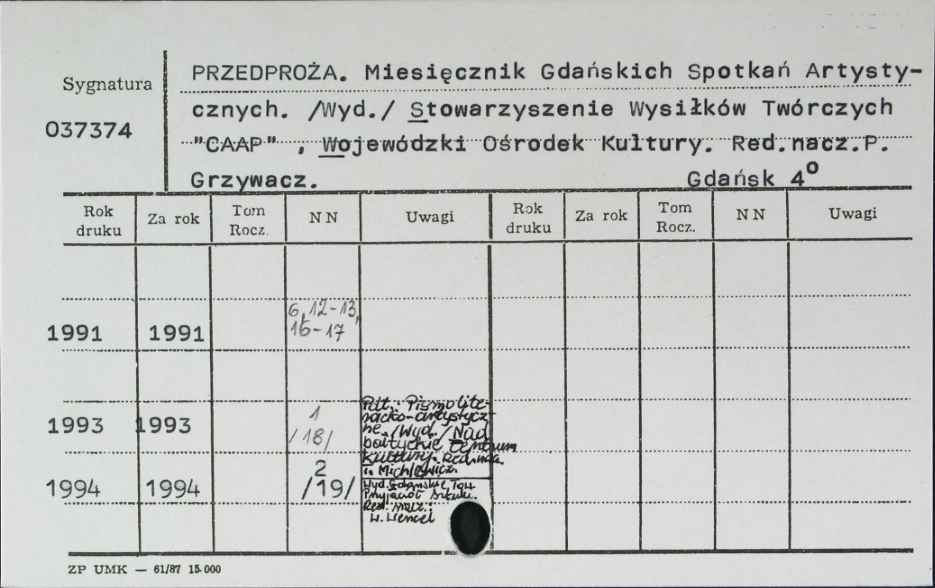 Sygnatura
037374
PRZEDPROŻA. Miesięcznik Gdańskich Spotkań Artysty-
cznych. /Wyd./ Stowarzyszenie Wysiłków Twórczych
"CAAP", Wojewódzki Ośrodek Kultury. Red.nacz.P.
Grzywacz. Gdańsk 4°
Rok druku Za rok Tom Rocz. NN Uwagi Rok druku Za rok Tom Rocz. NN Uwagi
1991 1991 6, 12-13,
16-17
1993 1993 1
/18/
Pdt.: Pismo lite-
racko-artystycz-
ne. /Wyd./ Nad
bałtyckie Centrum
Kultury. Red.
Michlewicz.
1994 1994 2
/19/
Wyd. Gdańskie Tow.
Przyjaciół Sztuki.
Red. nacz.:
W. Wencel
ZP UMK — 61/87 15.000